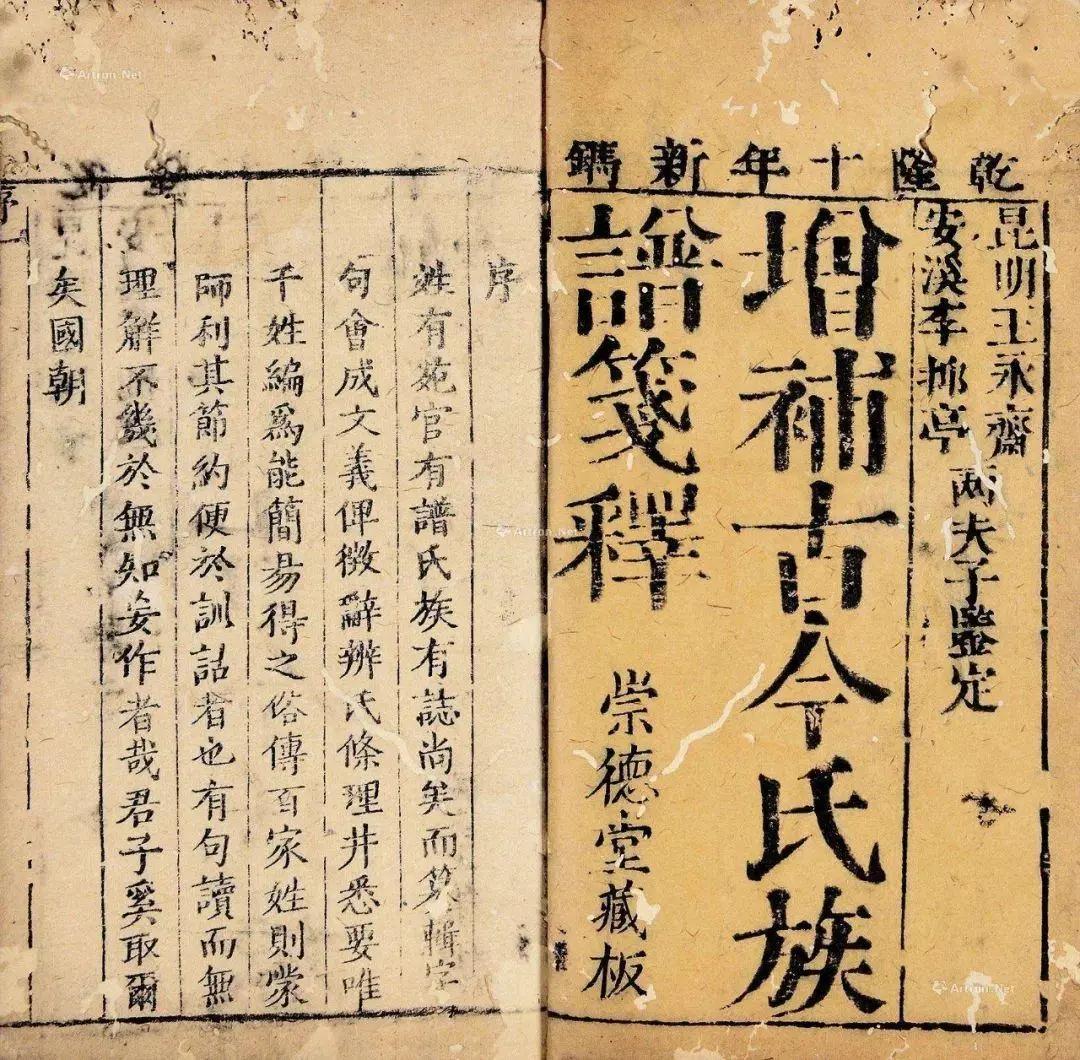 乾隆十年新鐫
昆明王永齋
安溪李郁亭
兩夫子鑒定
增補古今氏族
譜箋釋
崇德堂藏板
序
姓有苑官有譜氏族有誌尚矣而纂輯字
句會成文義俾徵辭辨氏條理井悉要唯
千姓編爲能簡易得之俗傳百家姓則蒙
師利其節約便於訓詁者也有句讀而無
理解不幾於無知妄作者哉君子奚取爾
矣國朝
序一
Artron.Net
Artron.Net
Artron.Net